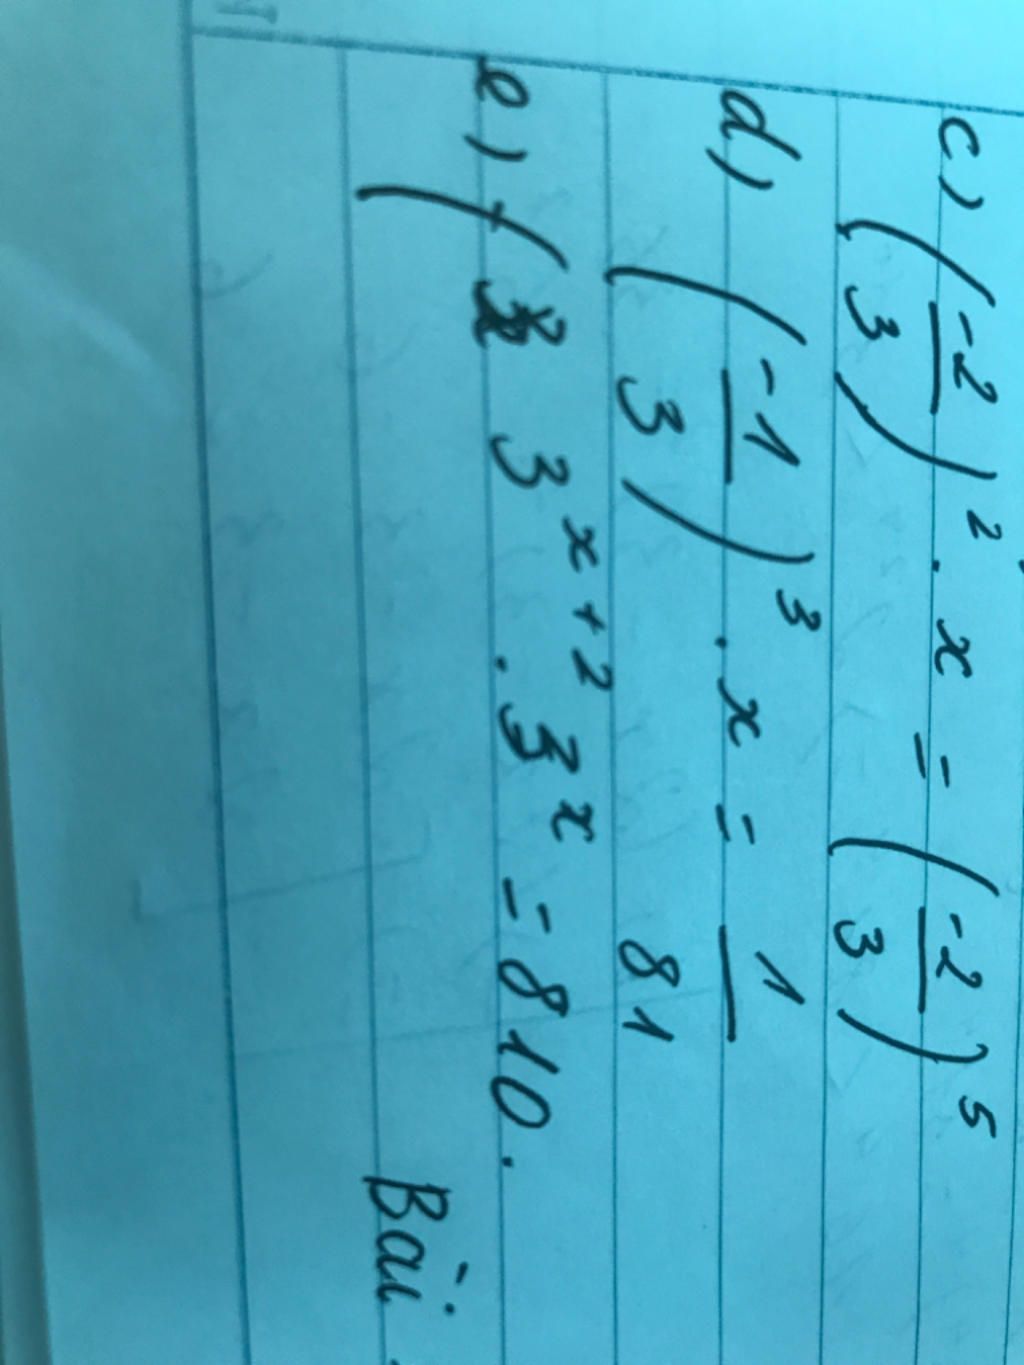 c) (-2/3)² . x = (-2/3)⁵
d) (-1/3)³ . x = 1/81
e) ( 3ˣ⁺² . 3ˣ = 810.
Bài